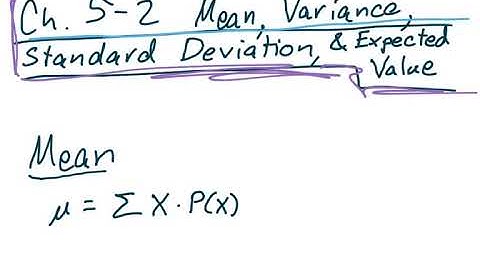 Ch. 5-2 Mean, Variance,
Standard Deviation, & Expected
Value
Mean
μ = Σ X · P(X)